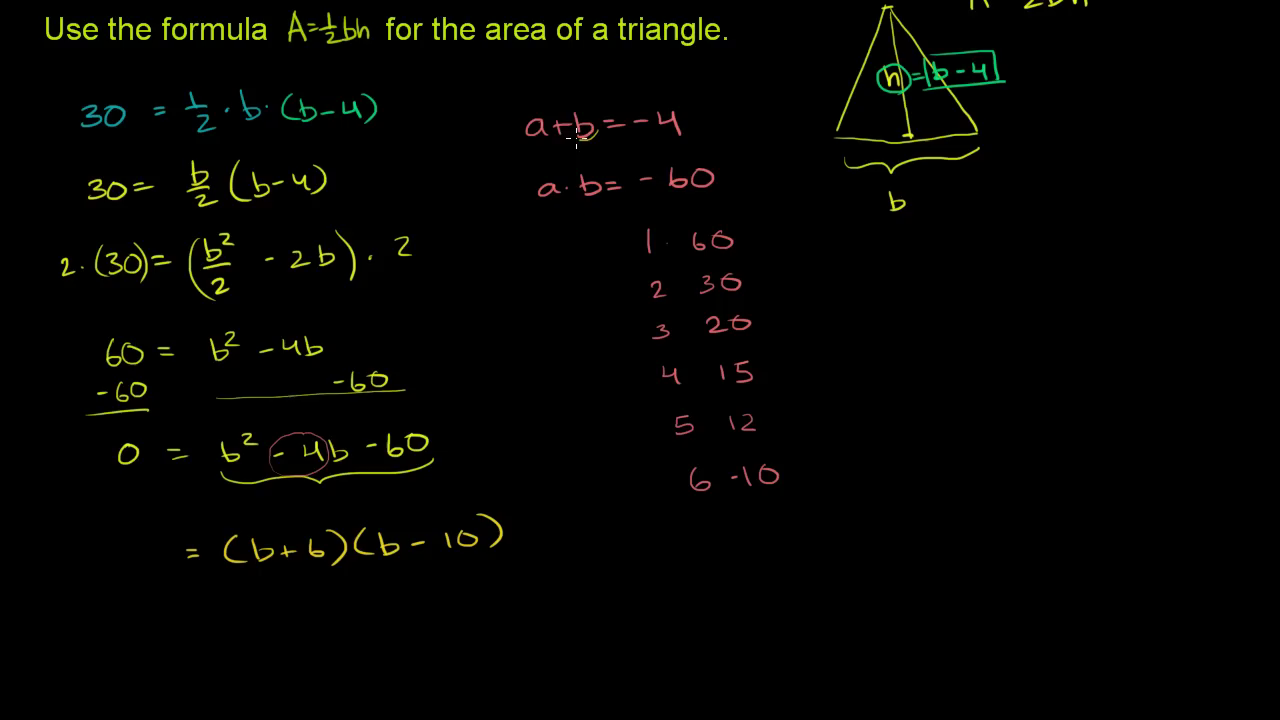 Use the formula A=½bh for the area of a triangle.
30 = 1/2 · b · (b-4)
30 = b/2 (b-4)
2·(30) = (b²/2 - 2b) · 2
60 = b² - 4b
-60 -60
0 = b² - 4b - 60
= (b+6)(b-10)
a+b=-4
a·b=-60
1 60
2 30
3 20
4 15
5 12
6 -10
h = b-4
b